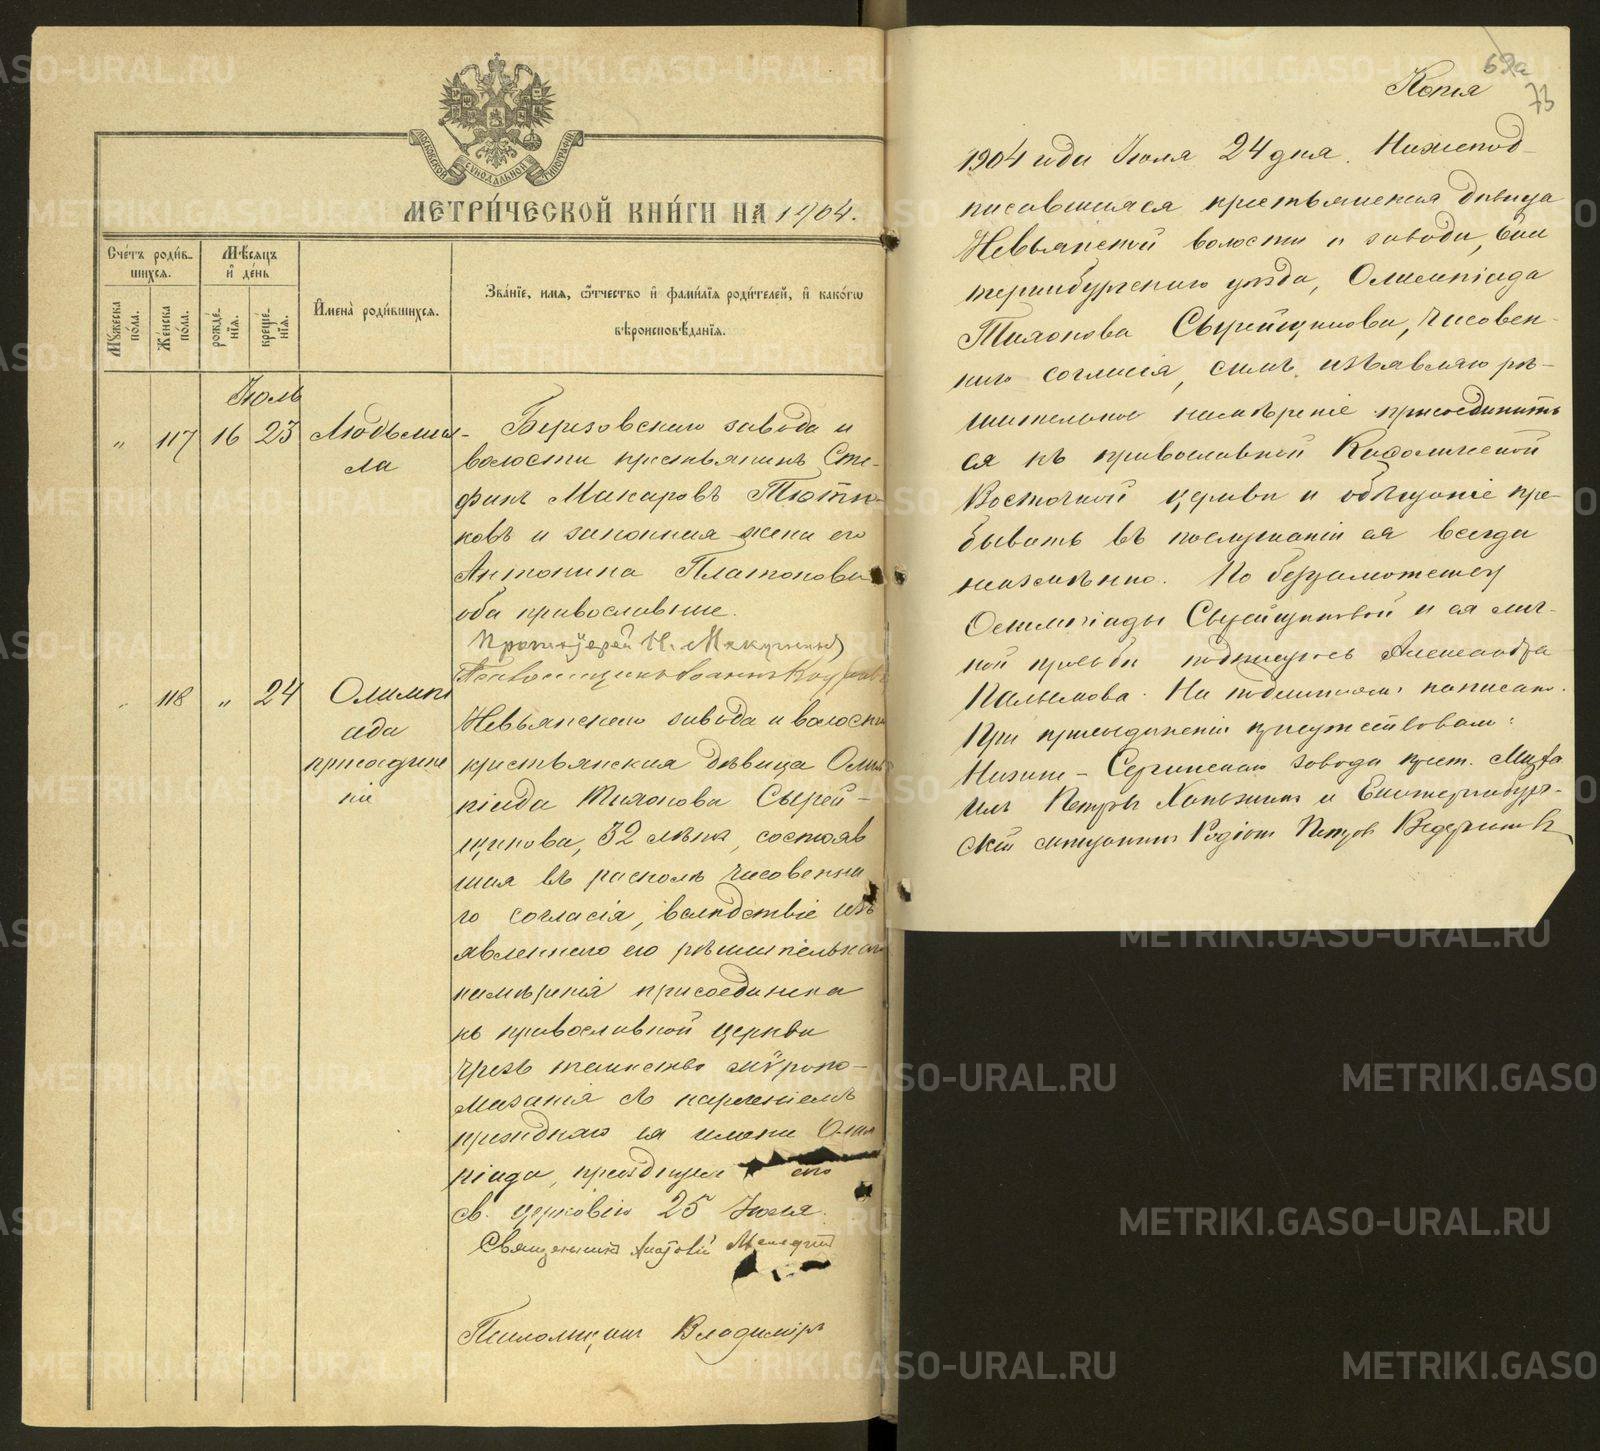 МОСКОВСКОЙ СѴНОДАЛЬНОЙ ТИПОГРАФІИ
МЕТРИ́ЧЕСКОЙ КНИ́ГИ НА 1904.
Сче́тъ роди́в-
шихся.
Мѣ́сяцъ
и҆ де́нь
Мꙋ́жеска по́ла.
Же́нска по́ла.
рожде́нїя.
креще́нїя.
И҆мена̀ роди́вшихся.
Зва́нїе, имя, ѻ҆́тчество и҆ фами́лїя роди́телей, и҆ како́гѡ
вѣроисповѣ́данїя.
Іюль
" 117 16 23 Людьми-
ла
Березовскаго завода и
волости крестьянинъ Сте-
фанъ Макаровъ
ковъ и законная жена его
Антонина Платонова
оба православные.
Протоіерей Н.
118 " 24 Олимпі
ада
присоедине
ніе
Невьянскаго завода и волости
крестьянская дѣвица Олим
піада Тихонова Сырей-
щикова, 32 лѣтъ, состояв
шая въ расколѣ часовенна
го согласія, вслѣдствіе изъ
явленнаго ею рѣшительнаго
намѣренія присоединена
къ православной церкви
чрезъ таинство мѵропо-
мазанія съ нареченіемъ
прежняго ея имени Олим
піада,
св. церковію 25 Іюля.
Священникъ
Псаломщикъ Владиміръ
69а
73
Копія
1904 года Іюля 24 дня. Нижепод-
писавшаяся крестьянская дѣвица
Невьянской волости и завода, Ека
теринбургскаго уѣзда, Олимпіада
Тихонова Сырейщикова, часовен-
наго согласія, симъ изъявляю рѣ-
шительное намѣреніе присоединить
ся къ православной Каѳолической
Восточной церкви и обѣщаніе пре-
бывать въ послушаніи ея всегда
неизмѣнно. По безграмотству
Олимпіады Сырейщиковой и ея лич-
ной просьбѣ подписуюсь Александра
На подлинномъ написано.
При присоединеніи присутствовали:
Нижне-Сергинскаго завода крест. Миха
илъ Петровъ и Екатеринбург-
скій мѣщанинъ Родіонъ Петровъ Ведерников
METRIKI.GASO-URAL.RU